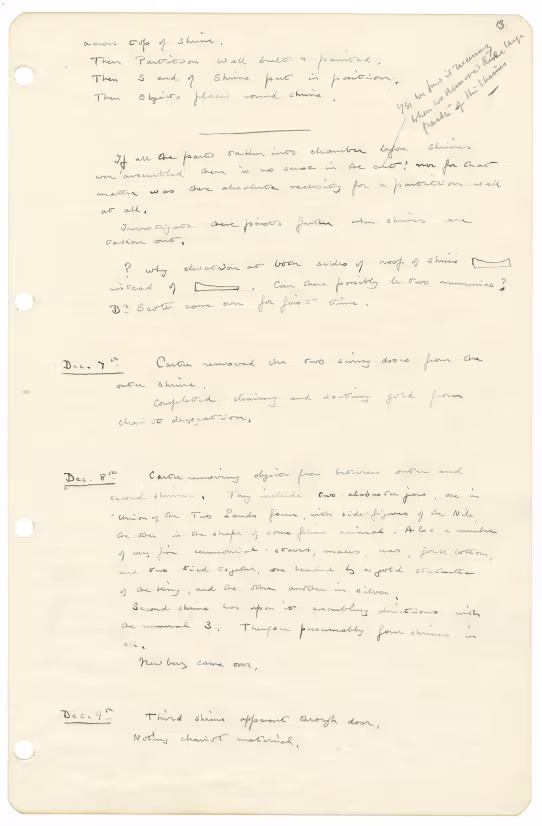 13
across top of shrine.
Then Partition Wall built & painted.
Then S end of Shrine put in position.
Then Objects placed round shrine.
yes we found it necessary
when we removed the large
parts of the Shrines
If all the parts taken into chamber before shrines
were assembled there is no sense in the cut! nor for that
matter was there absolute necessity for a partition wall
at all.
Investigate these points further when shrines are
taken out.
? Why elevation at both sides of roof of shrine
instead of . Can there possibly be two mummies?
Dr Scott came over for first time.
Dec. 7th Carter removed the two swing doors from the
outer shrine.
Completed cleaning and sorting gold from
chariot decoration.
Dec. 8th Carter removing objects from between outer and
second shrines. They include two alabaster jars, one in
"Union of the Two Lands form, with side figures of the Nile
the other in the shape of some feline animal. Also a number
of very fine ceremonial staves, maces, was, fork bottom,
and two tied together, one headed by a gold statuette
of the King, and the other another in silver.
Second shrine has upon it assembling directions with
the numeral 3. Therefore presumably four shrines in
all.
Newberry came over.
Dec. 9th Third shrine apparent through door.
Noting chariot material.